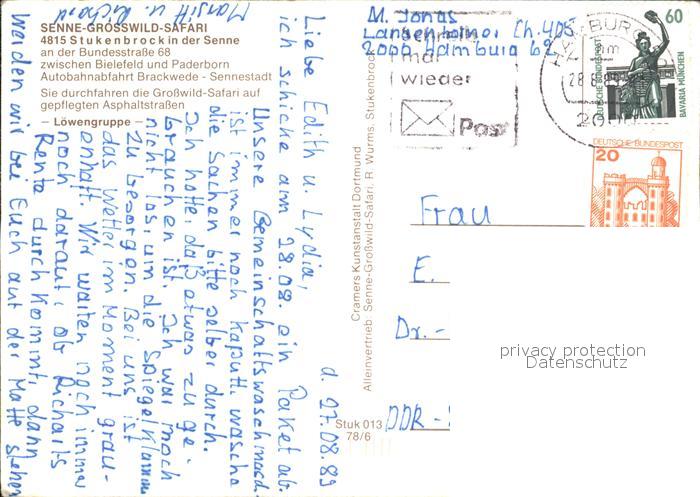 SENNE-GROSSWILD-SAFARI
4815 Stukenbrock in der Senne
an der Bundesstraße 68
zwischen Bielefeld und Paderborn
Autobahnabfahrt Brackwede - Sennestadt
Sie durchfahren die Großwild-Safari auf
gepflegten Asphaltstraßen
– Löwengruppe –
d. 27.08.89
Liebe Edith u. Lydia,
ich schicke am 28.08. ein Paket ab.
Unsere Gemeinschaftswaschmasch.
ist immer noch kaputt. wascht
die Sachen bitte selber durch.
Ich hoffe, daß etwas zu ge-
brauchen ist. Ich war noch
nicht los, um die Spiegelklammern
zu besorgen. Bei uns ist
das Wetter im Moment grau-
enhaft. Wir warten noch immer
noch darauf, ob Richards
Rente durchkommt, dann
werden wir bei Euch auf der Matte stehen
Margitt u. Richard
Cramers Kunstanstalt Dortmund
Alleinvertrieb: Senne-Großwild-Safari, R. Wurms, Stukenbrock
Stuk 013
78/6
M. Jonas
Langenhorner Ch. 405
2000 Hamburg 62
mal
wieder
Post
HAMBURG
28.8.89
20
60
DEUTSCHE BUNDESPOST
BAVARIA MÜNCHEN
DEUTSCHE BUNDESPOST
20
Frau
E.
Dr.-
DDR -
privacy protection
Datenschutz